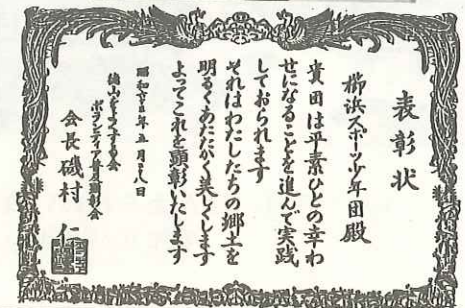 表彰状
櫛浜スポーツ少年団殿
貴団は平素ひとの幸わ
せになることを進んで実践
しておられます
それはわたしたちの郷土を
明るくあたたかく美しくします
よってこれを顕彰いたします
昭和 年五月 八日
徳山をよくする会
ボランティア善意顕彰会
会長 磯村 仁